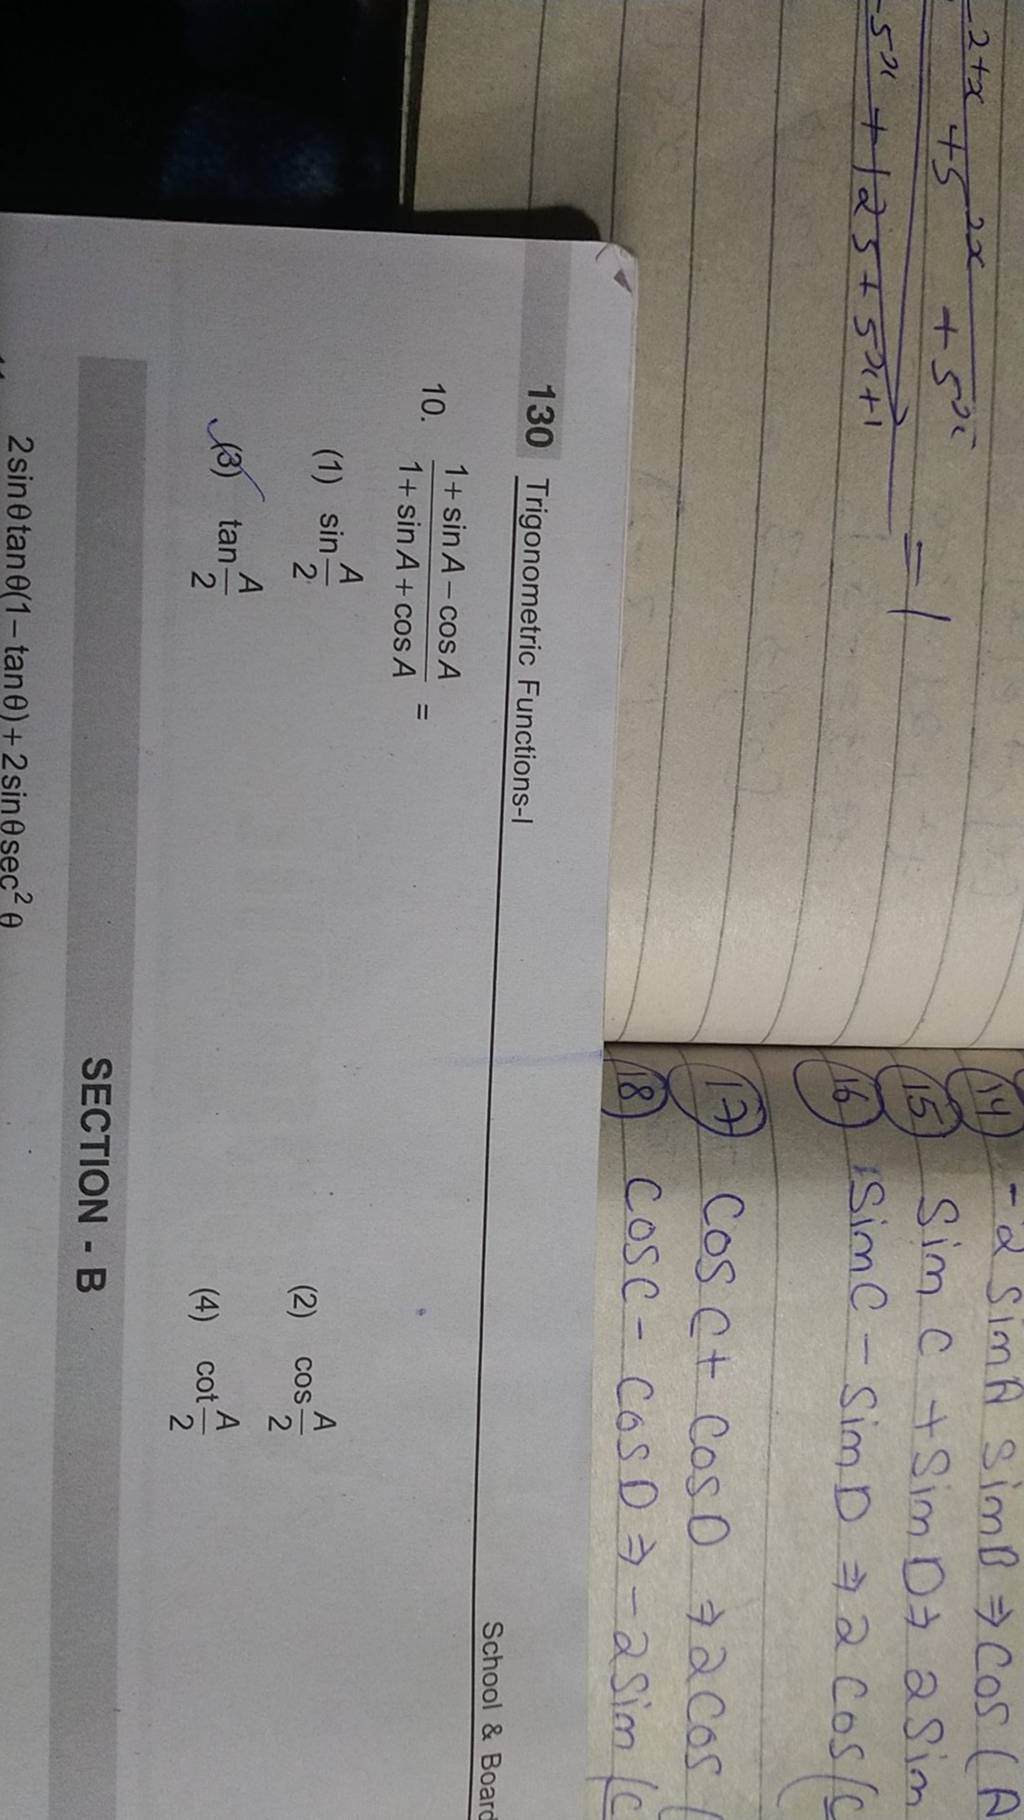 2+x + 5^2x + 5^x
5^x + 125 + 5^x+1 = 1
14 - 2 Sin A Sin B ⇒ Cos (A
15 Sin C + Sin D ⇒ 2 Sin
16 Sin C - Sin D ⇒ 2 Cos (C
17 Cos C + Cos D ⇒ 2 Cos (
18 Cos C - Cos D ⇒ - 2 Sin (C
130 Trigonometric Functions-I School & Board
10. 1 + sin A – cos A / 1 + sin A + cos A =
(1) sin A/2 (2) cos A/2
(3) tan A/2 (4) cot A/2
SECTION - B
2 sin θ tan θ(1 – tan θ) + 2 sin θ sec² θ